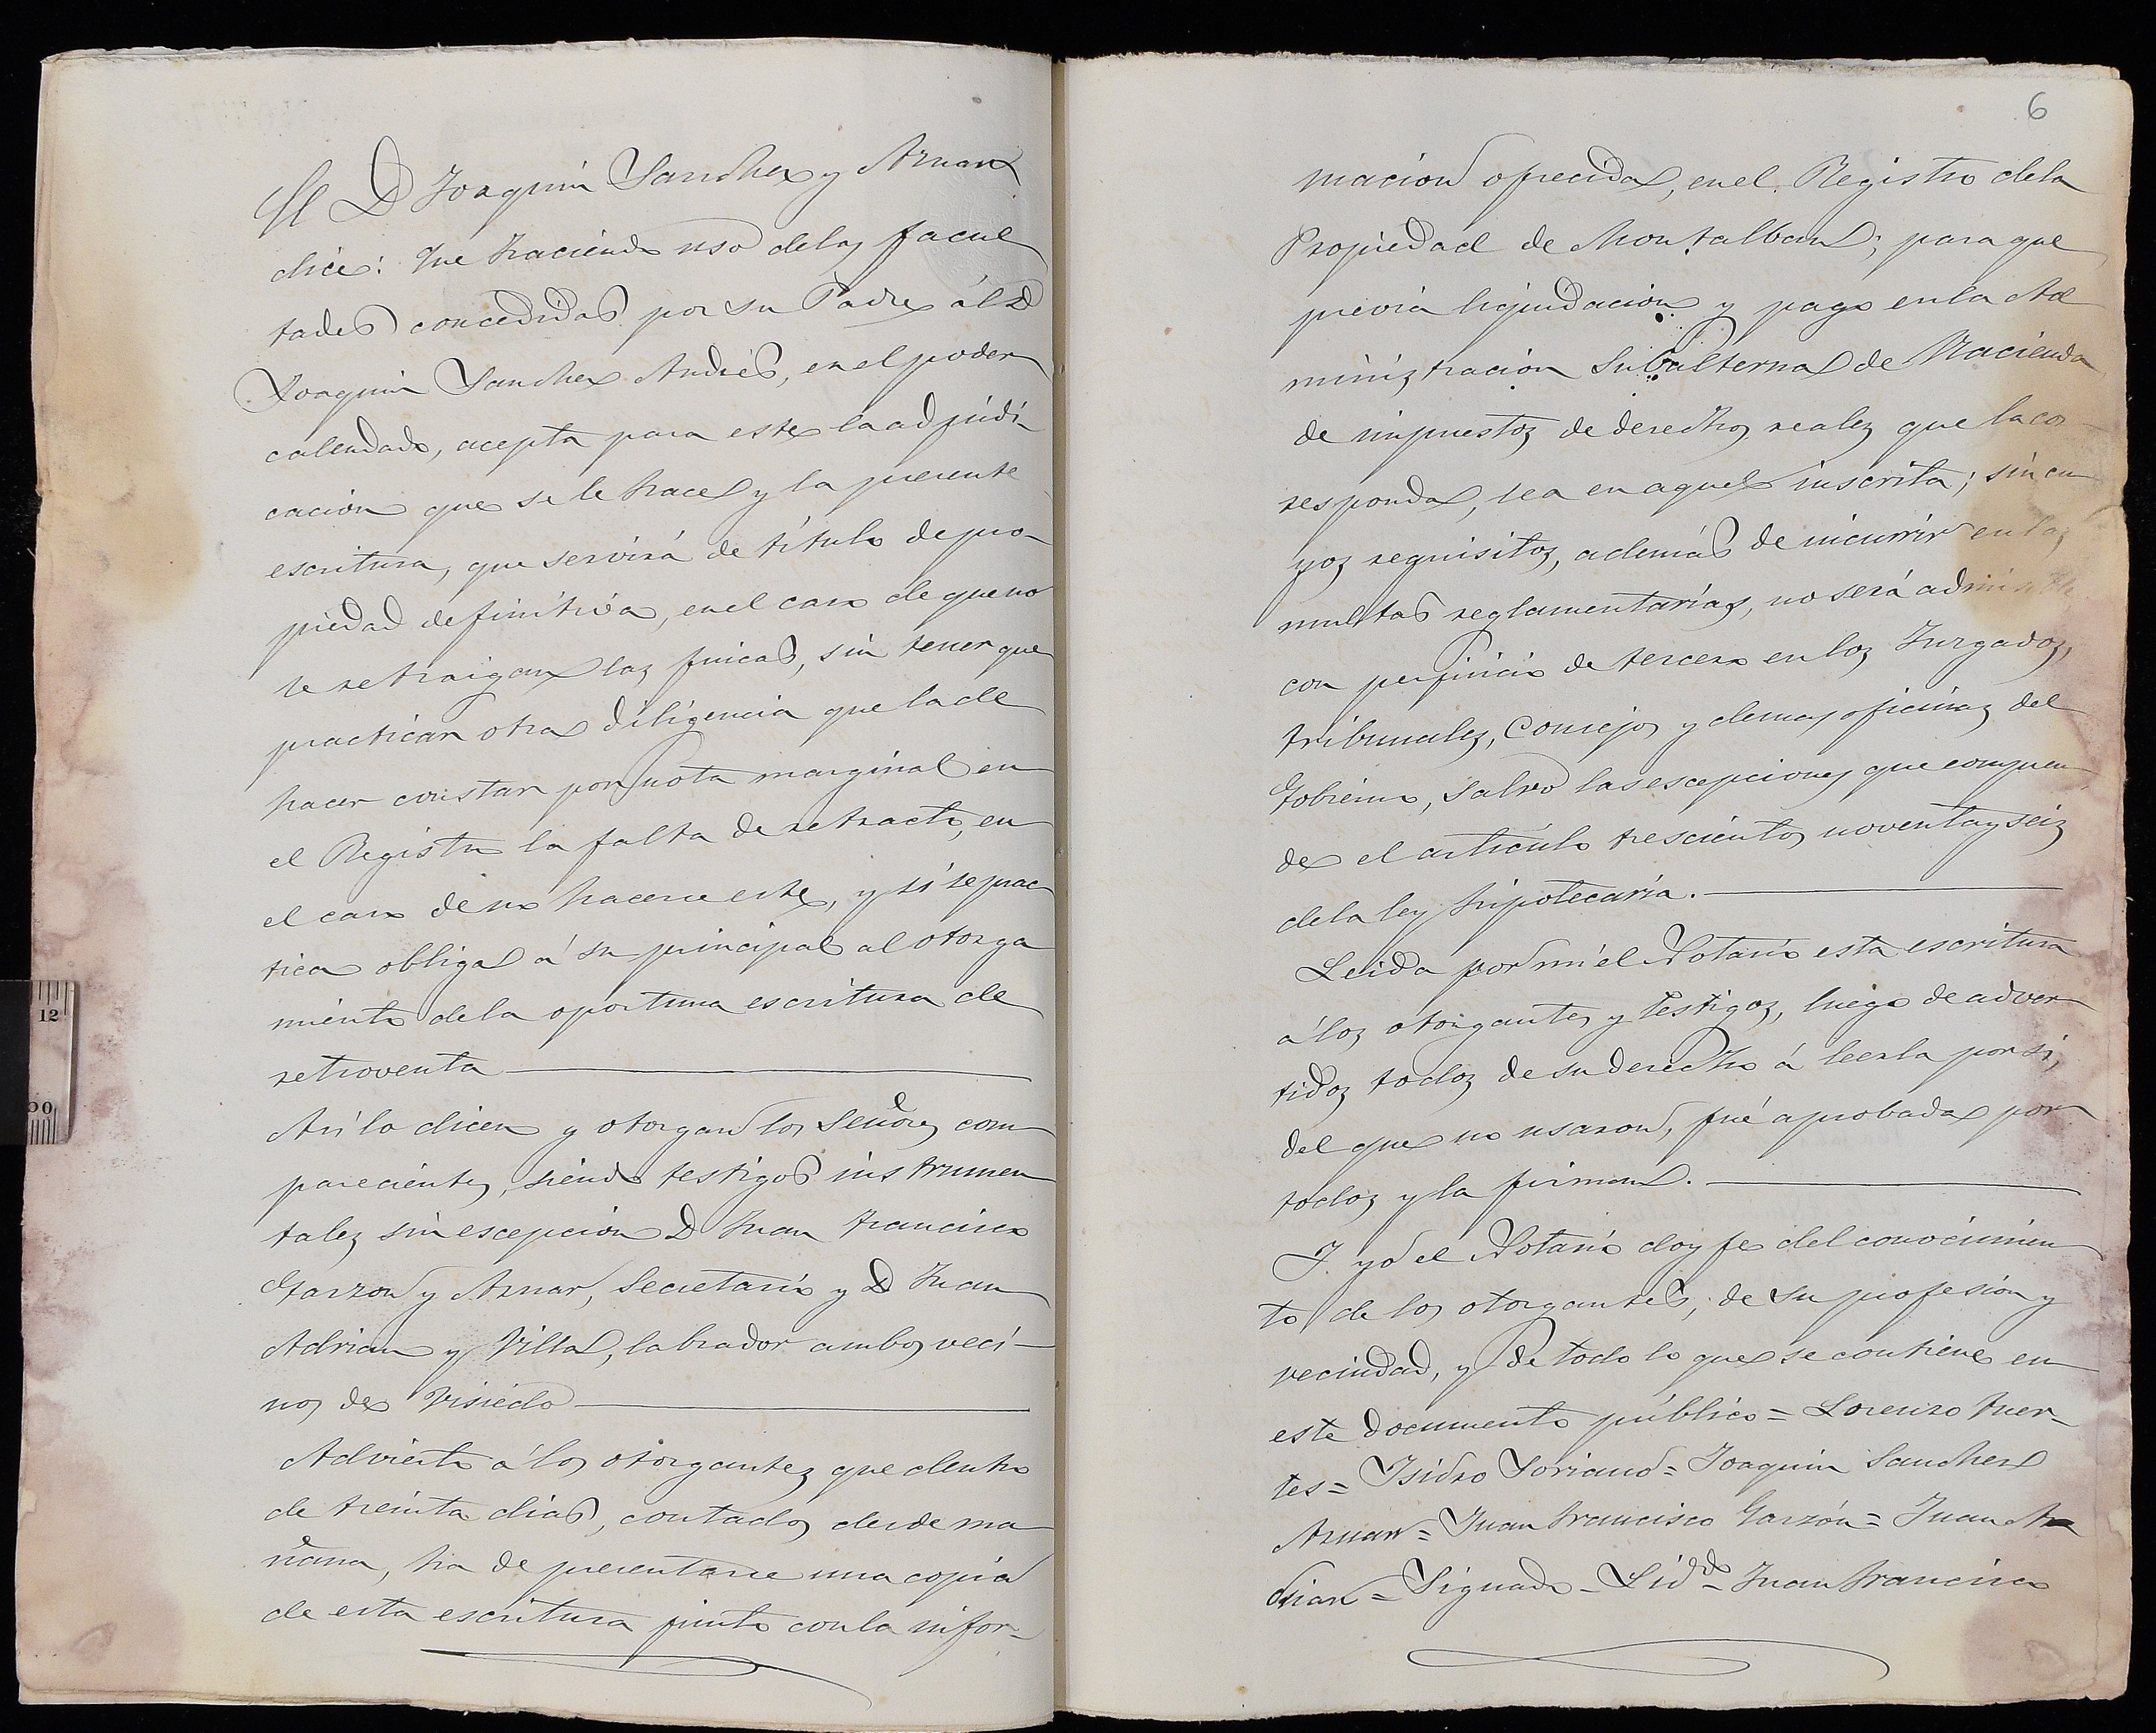 El D Joaquin Sanchez y Aznar
dice: Que haciendo uso de las facul
tades concedidas por su Padre él D
Joaquin Sanchez Andrés, en el poder
calendado, acepta para este la adjudi-
cacion que se le hace y la presente
escritura, que servirá de título de pro-
piedad definitiva, en el caso de que no
se retraigan las fincas, sin tener que
practicar otra diligencia que la de
hacer constar por nota marginal en
el Registro la falta de retracto, en
el caso de no hacerse este, y si se prac
tica obliga á su principal al otorga
miento de la oportuna escritura de
retroventa
Así lo dicen y otorgan los Señores com
parecientes, siendo testigos instrumen
tales sin escepcion D Juan Francisco
Garzon y Aznar, Secretario y D Juan
Adrian y Villal, labrador ambos veci-
nos de Visiedo
Advierto á los otorgantes que dentro
de treinta dias, contados desde ma
ñana, ha de presentarse una copia
de esta escritura junto con la infor-
6
macion ofrecida, en el Registro de la
Propiedad de Montalban; para que
previa liquidacion y pago en la Ad
ministracion Subalterna de Hacienda
de impuestos de derechos reales que la cor-
responda, sea en aquel inscrita; sin cu
yos requisitos, además de incurrir en las
multas reglamentarias, no será admisible
con perjuicio de tercero en los Juzgados,
tribunales, Consejos y demas oficinas del
Gobierno, salvo las escepciones que compren
de el articulo trescientos noventa y seis
de la ley hipotecaria.
Leida por mi el Notario esta escritura
á los otorgantes y testigos, luego de adver
tidos todos de su derecho á leerla por si,
del que no usaron, fué aprobada por
todos y la firman.
Y yo el Notario doy fe del conocimien
to de los otorgantes, de su profesión y
vecindad, y de todo lo que se contiene en
este documento público = Lorenzo Fuer-
tes = Isidro Soriano = Joaquin Sanchez
Aznar = Juan Francisco Garzón = Juan A
drian = Signado - Lid.do - Juan Francisco